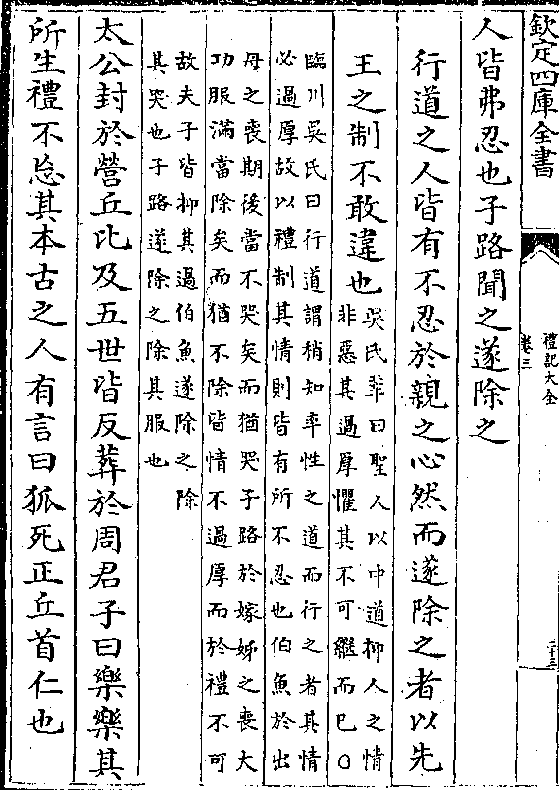 欽定四庫全書
禮記大全
卷三
二十三
人皆弗忍也子路聞之遂除之
行道之人皆有不忍於親之心然而遂除之者以先
王之制不敢違也
吳氏莘曰聖人以中道抑人之情
非惡其過厚懼其不可繼而已○
臨川吳氏曰行道謂稍知率性之道而行之者其情
必過厚故以禮制其情則皆有所不忍也伯魚於出
母之喪期後當不哭矣而猶哭子路於嫁姊之喪大
功服滿當除矣而猶不除皆情不過厚而於禮不可
故夫子皆抑其過伯魚遂除之除
其哭也子路遂除之除其服也
太公封於營丘比及五世皆反葬於周君子曰樂樂其
所生禮不忘其本古之人有言曰狐死正丘首仁也